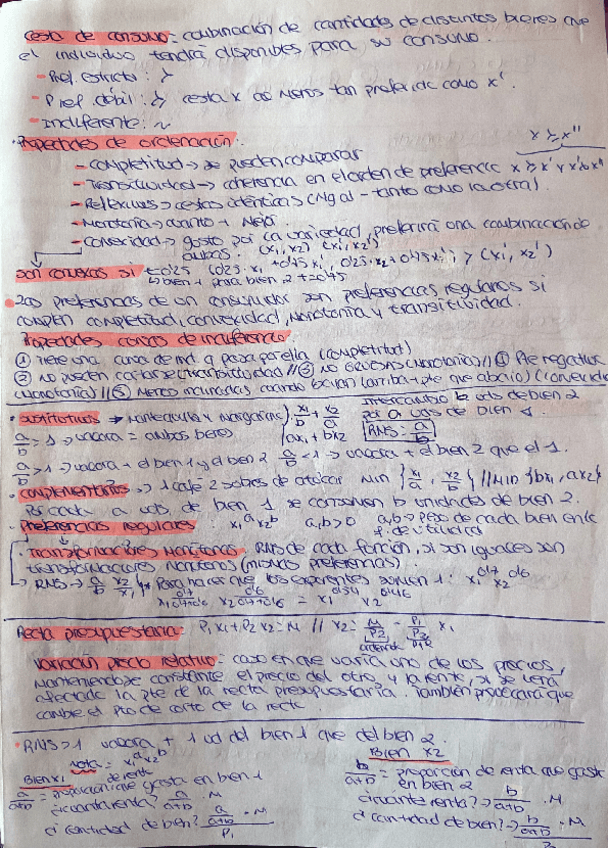 cesta de consumo: combinación de cantidades de distintos bienes que
el individuo tendrá disponibles para su consumo.
- Pref. estricta: ≻
- Pref débil: ≿ cesta x al menos tan preferida como x'
- Indiferente: ~
· Propiedades de ordenación: x ≿ x''
- completitud → se pueden comparar
- Transitividad → coherencia en el orden de preferencia x ≿ x' y x' ≿ x''
- Reflexivas → cestas idénticas
- Monotonía → cuanto + Mejor
- Convexidad → gusto por la variedad, preferirá una combinación de
ambas. (x1, x2) (x1', x2')
son convexas si t=0'25
· Las preferencias de un consumidor son preferencias regulares si
cumplen completitud, convexidad, Monotonía y transitividad.
Propiedades curvas de indiferencia:
① Tiene una curva de ind. q pasa por ella (completitud)
② No pueden cortarse (transitividad) // ③ No gruesas (Monotonía) // ④ Pte negativa
(Monotonía) // ⑤ Menos inclinadas cuando bajan (arriba + pte que abajo) (convexidad)
intercambio b uds de bien 2
· Sustitutivos → Mantequilla y margarina x1/b + x2/a por a uds de bien 1.
a/b = 1 → valora = ambos bienes ax1 + bx2 RMS = a/b
a/b > 1 → valora + el bien 1 y el bien 2 a/b < 1 → valora + el bien 2 que el 1.
· Complementarios → 1 café 2 sobres de azúcar Min {x1/a, x2/b} // Min {bx1, ax2}
Por cada a uds de bien 1 se consumen b unidades de bien 2.
· Preferencias regulares x1^a x2^b a,b>0 a,b → peso de cada bien en la
f. de utilidad
· Transformaciones Monótonas: RMS de cada función, si son iguales son
transformaciones Monótonas (mismas preferencias).
RMS → a/b x2/x1 * Para hacer que los exponentes sumen 1: x1^0'7 x2^0'6
x1^0'7/0'7+0'6 x2^0'6/0'7+0'6 = x1^0'54 x2^0'46
Recta presupuestaria: P1x1 + P2x2 = M // x2 = M/P2 - P1/P2 x1
ordenada pte
Variación precio relativo: caso en que varía uno de los precios,
manteniéndose constante el precio del otro y la renta, sí se verá
afectada la pte de la recta presupuestaria. También provocará que
cambie el pto de corte de la recta.
· RMS > 1 valora + 1 ud del bien 1 que del bien 2.
nota = x1^a x2^b Bien x2
Bien x1 de renta b/a+b = proporción de renta que gasta
a/a+b = proporción que gasta en bien 1 en bien 2
¿cuánta renta? a/a+b · M ¿cuánta renta? → b/a+b · M
¿cantidad de bien? a/a+b · M / P1 ¿cantidad de bien? → b/a+b · M